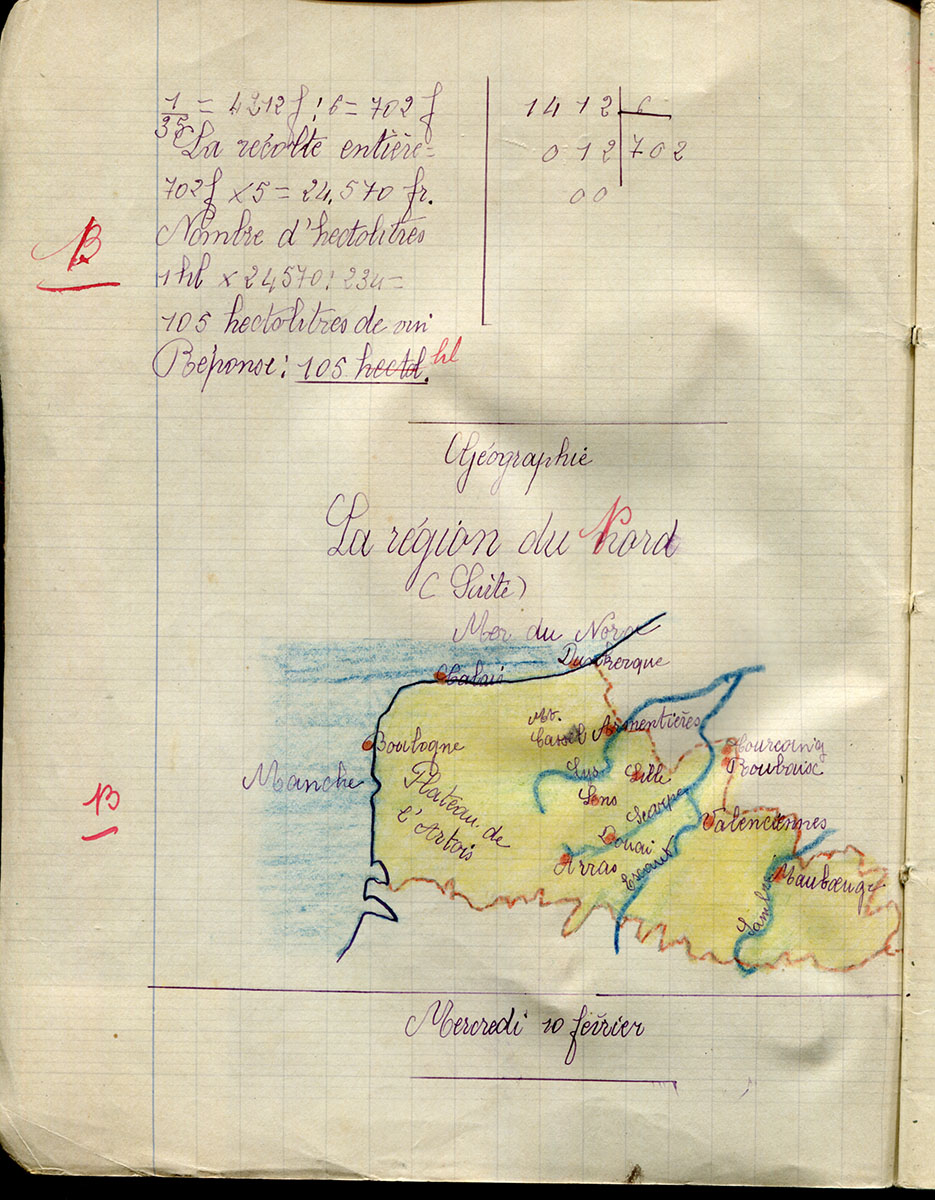 1/35 = 4212 f : 6 = 702 f
La récolte entière =
702 f × 5 = 24.570 fr.
Nombre d'hectolitres
1 hl × 24570 : 234 =
105 hectolitres de vin
Réponse : 105 hectol. hl
1412 6
012 702
00
B
Géographie
La région du Nord
(Suite)
Mer du Nord
Dunkerque
Calais
Mt.
Cassel
Armentières
Boulogne
Tourcoing
Roubaix
Manche
Plateau de
l'Artois
Lys
Lille
Lens
Scarpe
Valenciennes
Douai
Arras
Escaut
Maubeuge
Sambre
B
Mercredi 10 février